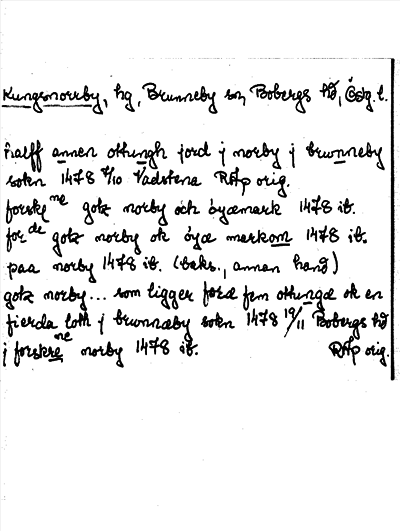 Kungsnorrby, hg, Brunneby sn, Bobergs hd, Östg. l.
halff annen othungh jord j norby j brwnneby
sokn 1478 4/10 Vadstena RAp orig.
forskne gotz norby och öyæmark 1478 ib.
forde gotz norby ok öyæ markom 1478 ib.
paa norby 1478 ib. (baks., annan hand)
gotz norby... som ligger foræ fem othungæ ok en
fierda loth j brwnnæby sokn 1478 19/11 Bobergs hd
j forskrene norby 1478 ib. RAp orig.